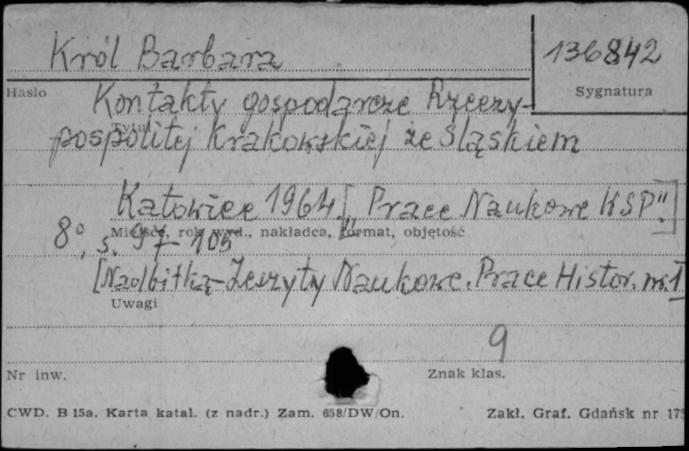 Król Barbara
136842
Hasło
Sygnatura
Kontakty gospodarcze Rzeczy-
pospolitej Krakowskiej ze Śląskiem
Katowice 1964. [„Prace Naukowe WSP".]
Miejsce, rok wyd., nakładca, format, objętość
8°, s. 97-105
[Nadbitka-Zeszyty Naukowe. Prace Histor. nr. 1]
Uwagi
9
Nr inw.
Znak klas.
CWD. B 15a. Karta katal. (z nadr.) Zam. 658/DW/On.
Zakł. Graf. Gdańsk nr 175